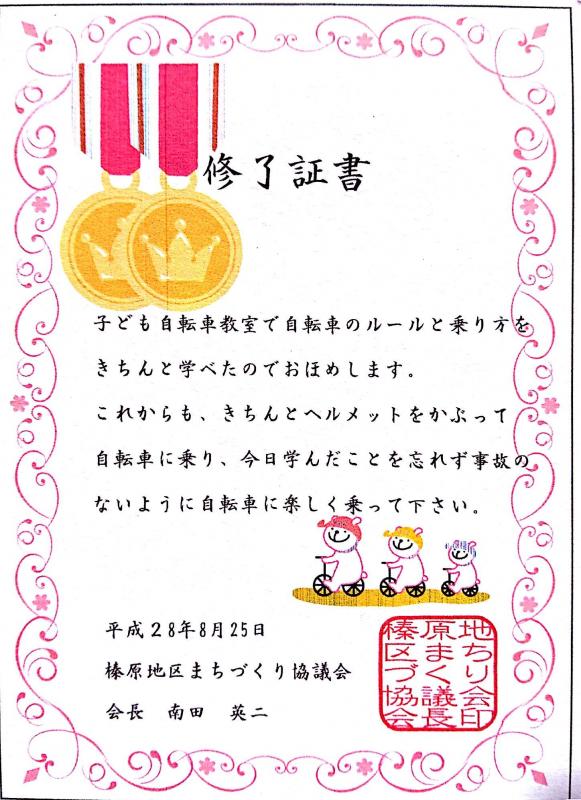 修了証書
子ども自転車教室で自転車のルールと乗り方を
きちんと学べたのでおほめします。
これからも、きちんとヘルメットをかぶって
自転車に乗り、今日学んだことを忘れず事故の
ないように自転車に楽しく乗って下さい。
平成28年8月25日
榛原地区まちづくり協議会
会長 南田 英二
榛原地
区まち
づくり
協議会
会長印